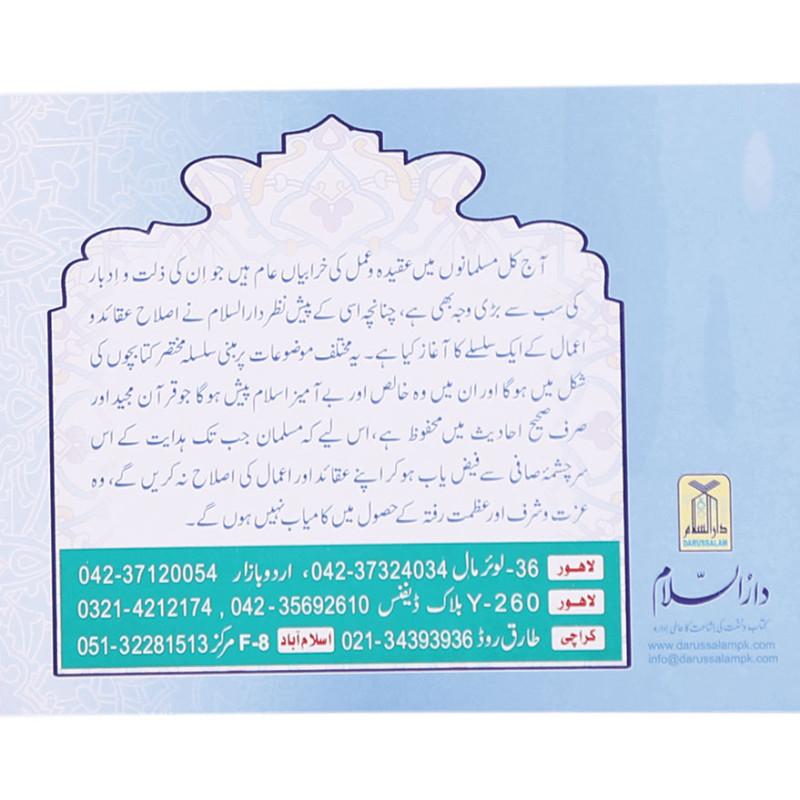 آج کل مسلمانوں میں عقیدہ و عمل کی خرابیاں عام ہیں جو اِن کی ذلت و اِدبار
کی سب سے بڑی وجہ بھی ہے، چنانچہ اسی کے پیش نظر دارالسلام نے اصلاح عقائد و
اعمال کے ایک سلسلے کا آغاز کیا ہے۔ یہ مختلف موضوعات پر مبنی سلسلہ مختصر کتابچوں کی
شکل میں ہوگا اور ان میں وہ خالص اور بے آمیز اسلام پیش ہوگا جو قرآن مجید اور
صرف صحیح احادیث میں محفوظ ہے، اس لیے کہ مسلمان جب تک ہدایت کے اس
سرچشمۂ صافی سے فیض یاب ہو کر اپنے عقائد اور اعمال کی اصلاح نہ کریں گے، وہ
عزت و شرف اور عظمت رفتہ کے حصول میں کامیاب نہیں ہوں گے۔
لاهور 36-لوئر مال 042-37324034، اردو بازار 042-37120054
لاهور Y-260 بلاک ڈیفنس 042-35692610 , 0321-4212174
کراچی طارق روڈ 021-34393936 اسلام آباد F-8 مرکز 051-32281513
دارالسلام
DARUSSALAM
دارُالسّلام
کتاب و سنت کی اشاعت کا عالمی ادارہ
www.darussalampk.com
info@darussalampk.com